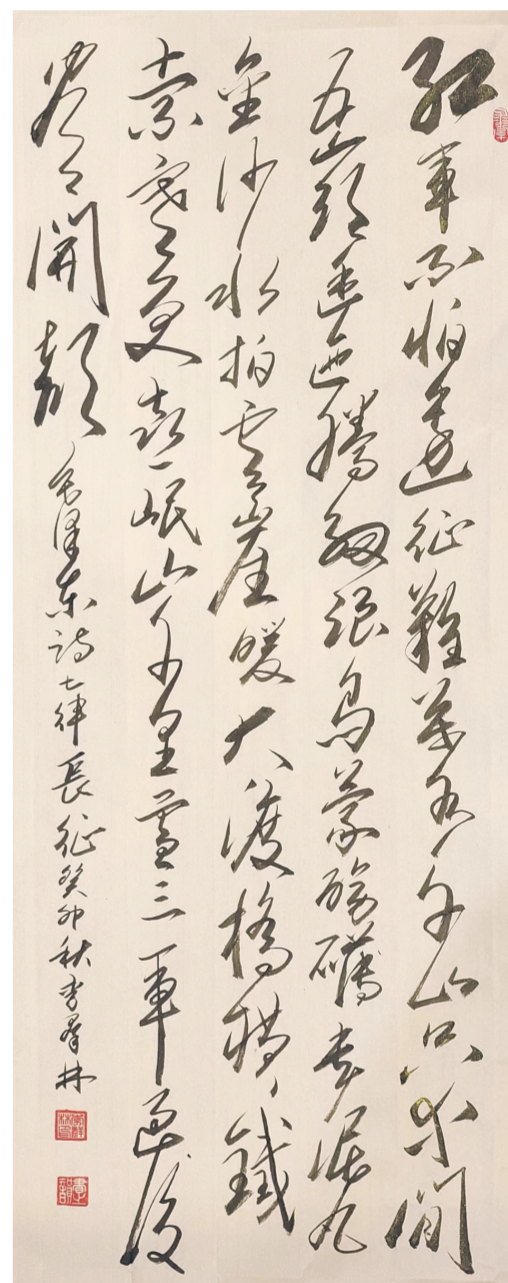 紅軍不怕遠征難萬水千山只等閒
五嶺逶迤騰細浪烏蒙磅礴走泥丸
金沙水拍雲崖暖大渡橋橫鐵
索寒更喜岷山千里雪三軍過後
盡開顏
毛澤東詩七律長征癸卯秋李羣林